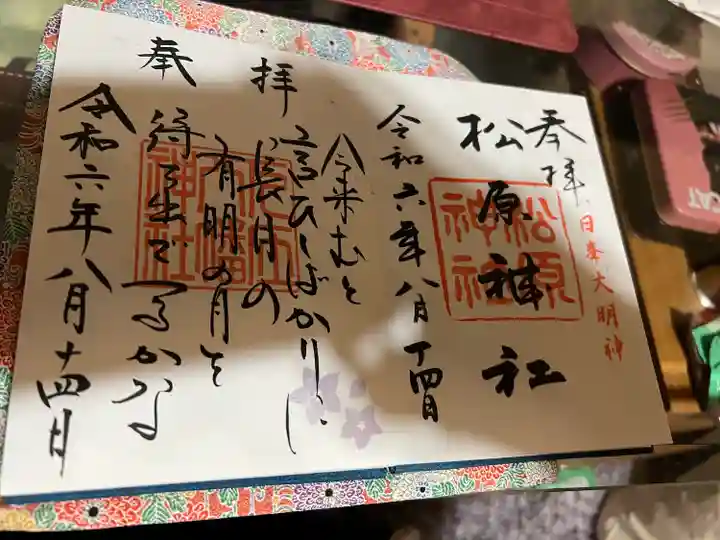 奉拝
日峯大明神
松原神社
松原神社
令和六年八月十四日
奉拝
今来むと
言ひしばかりに
長月の
有明の月を
待ち出でつるかな
神社
令和六年八月十四日